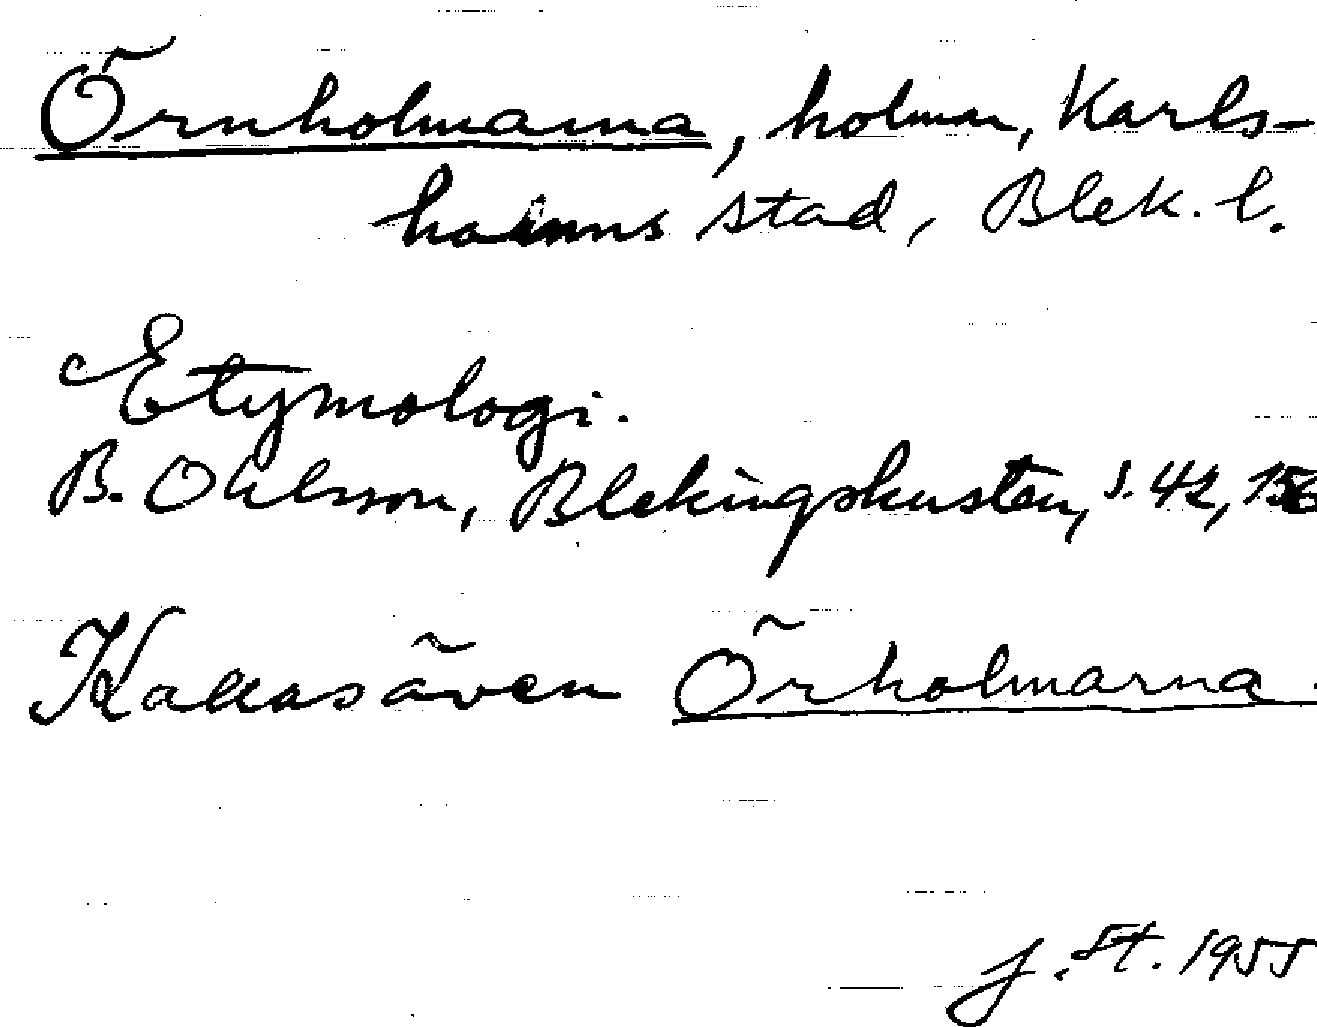 Örnholmarna, holmar, Karls-
hamns stad, Blek. l.
Etymologi.
B. Ohlsson, Blekingskusten, s. 42, 156
Kallas även Örholmarna.
J. St. 1955